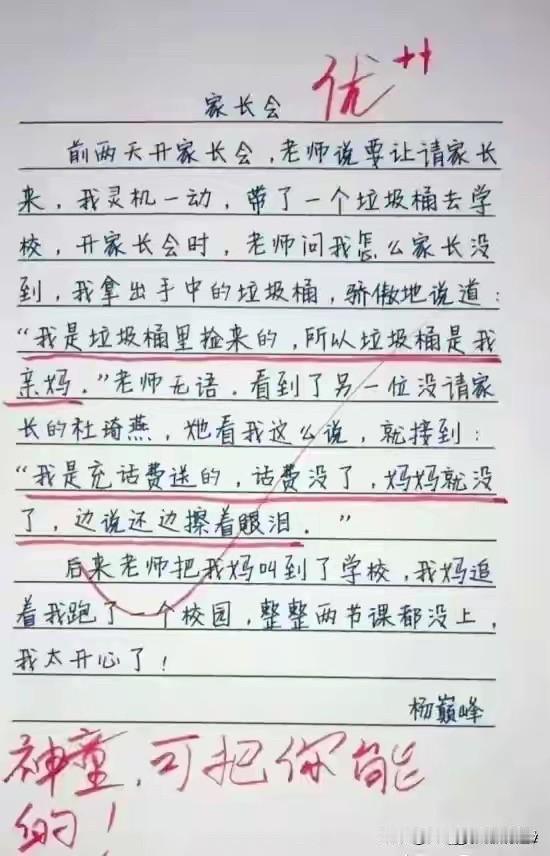 家长会
优++
前两天开家长会，老师说要让请家长
来，我灵机一动，带了一个垃圾桶去学
校，开家长会时，老师问我怎么家长没
到，我拿出手中的垃圾桶，骄傲地说道：
“我是垃圾桶里捡来的，所以垃圾桶是我
亲妈．”老师无语．看到了另一位没请家
长的杜琦燕，她看我这么说，就接到：
“我是充话费送的，话费没了，妈妈就没
了，边说还边擦着眼泪．”
后来老师把我妈叫到了学校，我妈追
着我跑了一个校园，整整两节课都没上，
我太开心了！
杨巅峰
神童，可把你能
的！